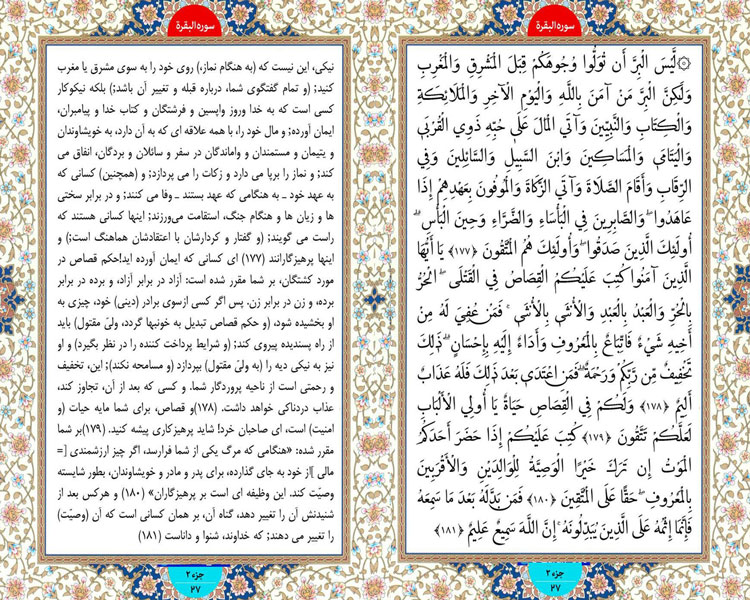 سوره البقرة
۞ لَّيْسَ الْبِرَّ أَن تُوَلُّوا وُجُوهَكُمْ قِبَلَ الْمَشْرِقِ وَالْمَغْرِبِ
وَلَكِنَّ الْبِرَّ مَنْ آمَنَ بِاللَّهِ وَالْيَوْمِ الْآخِرِ وَالْمَلَائِكَةِ
وَالْكِتَابِ وَالنَّبِيِّينَ وَآتَى الْمَالَ عَلَى حُبِّهِ ذَوِي الْقُرْبَى
وَالْيَتَامَى وَالْمَسَاكِينَ وَابْنَ السَّبِيلِ وَالسَّائِلِينَ وَفِي
الرِّقَابِ وَأَقَامَ الصَّلَاةَ وَآتَى الزَّكَاةَ وَالْمُوفُونَ بِعَهْدِهِمْ إِذَا
عَاهَدُوا ۖ وَالصَّابِرِينَ فِي الْبَأْسَاءِ وَالضَّرَّاءِ وَحِينَ الْبَأْسِ ۗ
أُولَئِكَ الَّذِينَ صَدَقُوا ۖ وَأُولَئِكَ هُمُ الْمُتَّقُونَ ﴿۱۷۷﴾ يَا أَيُّهَا
الَّذِينَ آمَنُوا كُتِبَ عَلَيْكُمُ الْقِصَاصُ فِي الْقَتْلَى ۖ الْحُرُّ
بِالْحُرِّ وَالْعَبْدُ بِالْعَبْدِ وَالْأُنثَى بِالْأُنثَى ۚ فَمَنْ عُفِيَ لَهُ مِنْ
أَخِيهِ شَيْءٌ فَاتِّبَاعٌ بِالْمَعْرُوفِ وَأَدَاءٌ إِلَيْهِ بِإِحْسَانٍ ۗ ذَلِكَ
تَخْفِيفٌ مِّن رَّبِّكُمْ وَرَحْمَةٌ ۗ فَمَنِ اعْتَدَى بَعْدَ ذَلِكَ فَلَهُ عَذَابٌ
أَلِيمٌ ﴿۱۷۸﴾ وَلَكُمْ فِي الْقِصَاصِ حَيَاةٌ يَا أُولِي الْأَلْبَابِ
لَعَلَّكُمْ تَتَّقُونَ ﴿۱۷۹﴾ كُتِبَ عَلَيْكُمْ إِذَا حَضَرَ أَحَدَكُمُ
الْمَوْتُ إِن تَرَكَ خَيْرًا الْوَصِيَّةُ لِلْوَالِدَيْنِ وَالْأَقْرَبِينَ
بِالْمَعْرُوفِ ۖ حَقًّا عَلَى الْمُتَّقِينَ ﴿۱۸۰﴾ فَمَن بَدَّلَهُ بَعْدَ مَا سَمِعَهُ
فَإِنَّمَا إِثْمُهُ عَلَى الَّذِينَ يُبَدِّلُونَهُ ۚ إِنَّ اللَّهَ سَمِيعٌ عَلِيمٌ ﴿۱۸۱﴾
جزء ۲
۲۷
سوره البقرة
نیکی، این نیست که (به هنگام نماز،) روی خود را به سوی مشرق یا مغرب
کنید؛ (و تمام گفتگوی شما، درباره قبله و تغییر آن باشد؛) بلکه نیکوکار
کسی است که به خدا وروز واپسین و فرشتگان و کتاب خدا و پیامبران،
ایمان آورده؛ و مال خود را، با همه علاقه ای که به آن دارد، به خویشاوندان
و یتیمان و مستمندان و واماندگان در سفر و سائلان و بردگان، انفاق می
کند؛ و نماز را برپا می دارد و زکات را می پردازد؛ و (همچنین) کسانی که
به عهد خود ـ به هنگامی که عهد بستند ـ وفا می کنند؛ و در برابر سختی
ها و زیان ها و هنگام جنگ، استقامت می‌ورزند؛ اینها کسانی هستند که
راست می گویند؛ (و گفتار و کردارشان با اعتقادشان هماهنگ است؛) و
اینها پرهیزگارانند (۱۷۷) ای کسانی که ایمان آورده اید!حکم قصاص در
مورد کشتگان، بر شما مقرر شده است: آزاد در برابر آزاد، و برده در برابر
برده، و زن در برابر زن. پس اگر کسی ازسوی برادر (دینی) خود، چیزی به
او بخشیده شود، (و حکم قصاص تبدیل به خونبها گردد، ولیّ مقتول) باید
از راه پسندیده پیروی کند؛ (و شرایط پرداخت کننده را در نظر بگیرد) و او
نیز به نیکی دیه را (به ولیّ مقتول) بپردازد (و مسامحه نکند)؛ این، تخفیف
و رحمتی است از ناحیه پروردگار شما. و کسی که بعد از آن، تجاوز کند،
عذاب دردناکی خواهد داشت. (۱۷۸)و قصاص، برای شما مایه حیات (و
امنیت) است، ای صاحبان خرد! شاید پرهیزکاری پیشه کنید. (۱۷۹)بر شما
مقرر شده: «هنگامی که مرگ یکی از شما فرارسد، اگر چیز ارزشمندی [=
مالی ]از خود به جای گذارده، برای پدر و مادر و خویشاوندان، بطور شایسته
وصیّت کند. این وظیفه ای است بر پرهیزگاران» (۱۸۰) و هرکس بعد از
شنیدنش آن را تغییر دهد، گناه آن، بر همان کسانی است که آن (وصیّت)
را تغییر می دهند؛ که خداوند، شنوا و داناست (۱۸۱)
جزء ۲
۲۷